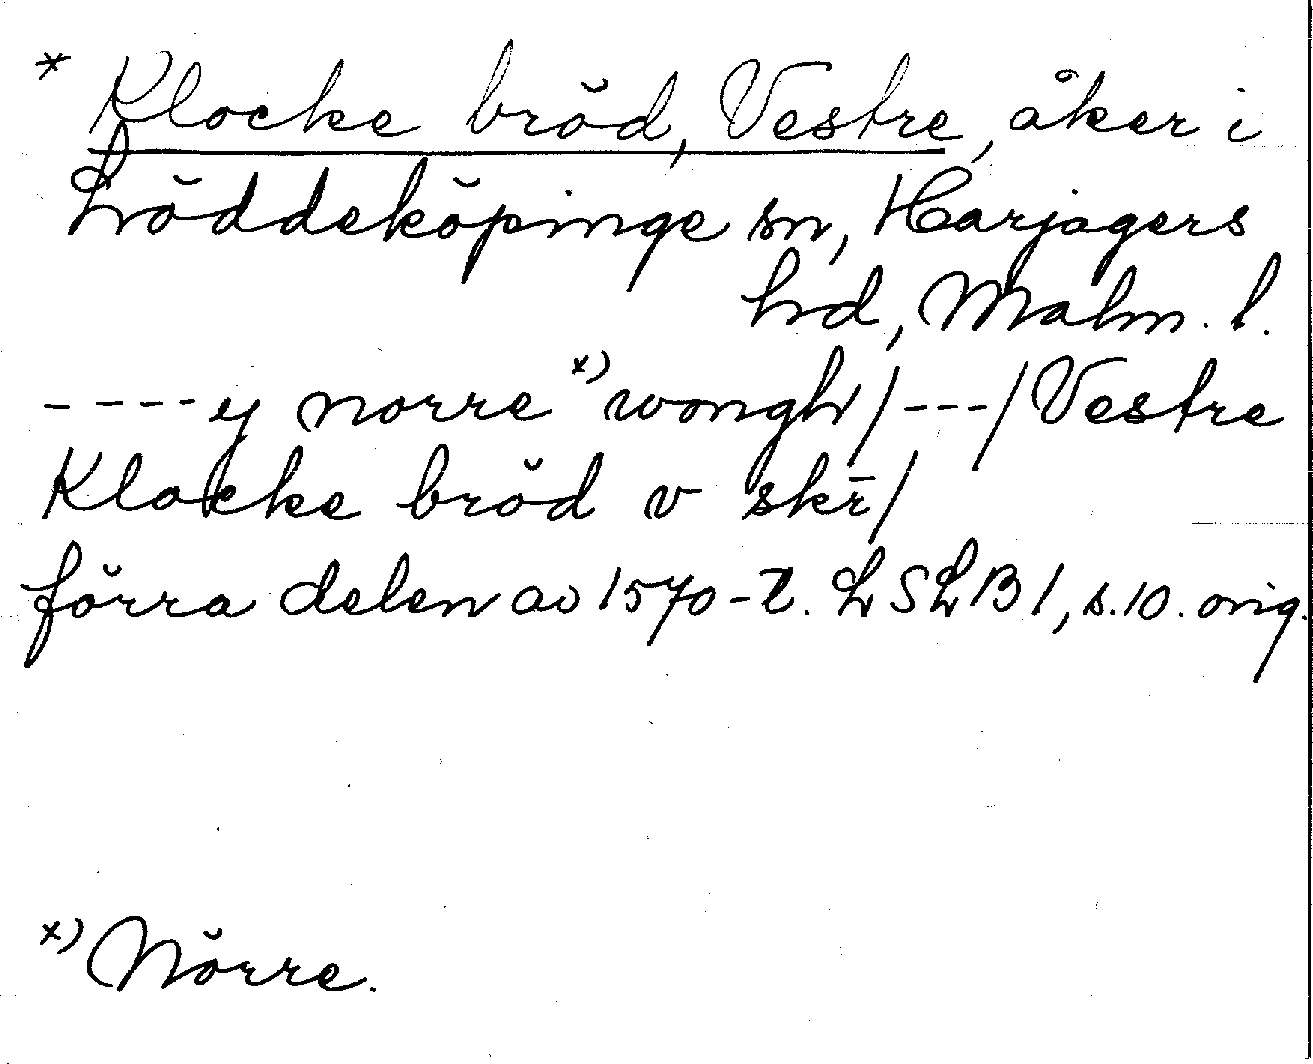 * Klocke bröd, Vestre, åker i
Löddeköpinge sn, Harjagers
hd, Malm. l.
---- y norre x) wongh/---/Vestre
Klocke bröd v skr̄/
förra delen av 1570-t. LSLB 1, s.10. orig.
x) Nörre.